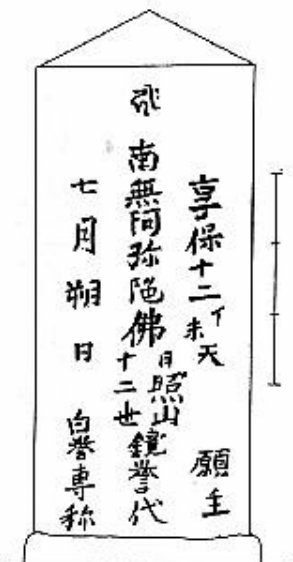 享保十二丁未天 願主
南無阿弥陀佛
日照山
十二世鏡誉代
七月朔日 白誉専称